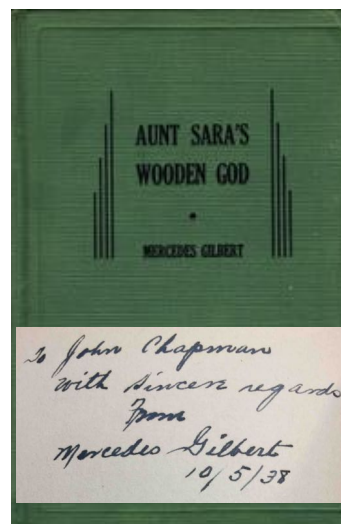 AUNT SARA'S
WOODEN GOD
MERCEDES GILBERT
To John Chapman
with sincere regards
From
Mercedes Gilbert
10/5/38